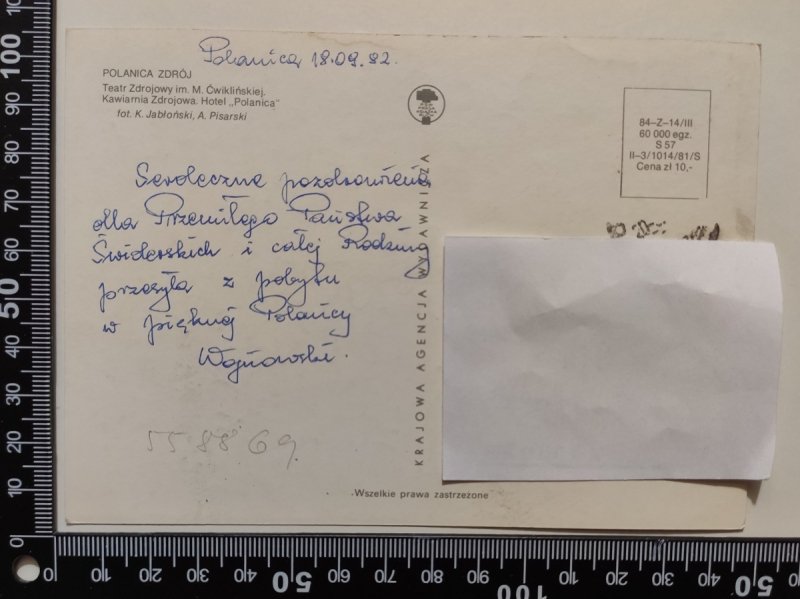 Polanica 18.09.82.
POLANICA ZDRÓJ
Teatr Zdrojowy im. M. Ćwiklińskiej.
Kawiarnia Zdrojowa. Hotel „Polanica"
fot. K. Jabłoński, A. Pisarski
Serdeczne pozdrowienia
dla Przemiłego Państwa
Świderskich i całej Rodziny
przesyła z pobytu
w pięknej Polanicy
Wojnowski.
558869
KRAJOWA AGENCJA WYDAWNICZA
84–Z–14/III
60 000 egz.
S 57
II–3/1014/81/S
Cena zł 10,-
Wszelkie prawa zastrzeżone
100
90
80
70
60
50
40
30
20
10
0
0 10 20 30 40 50 60 70 80 90 100 10 20 30 40 50